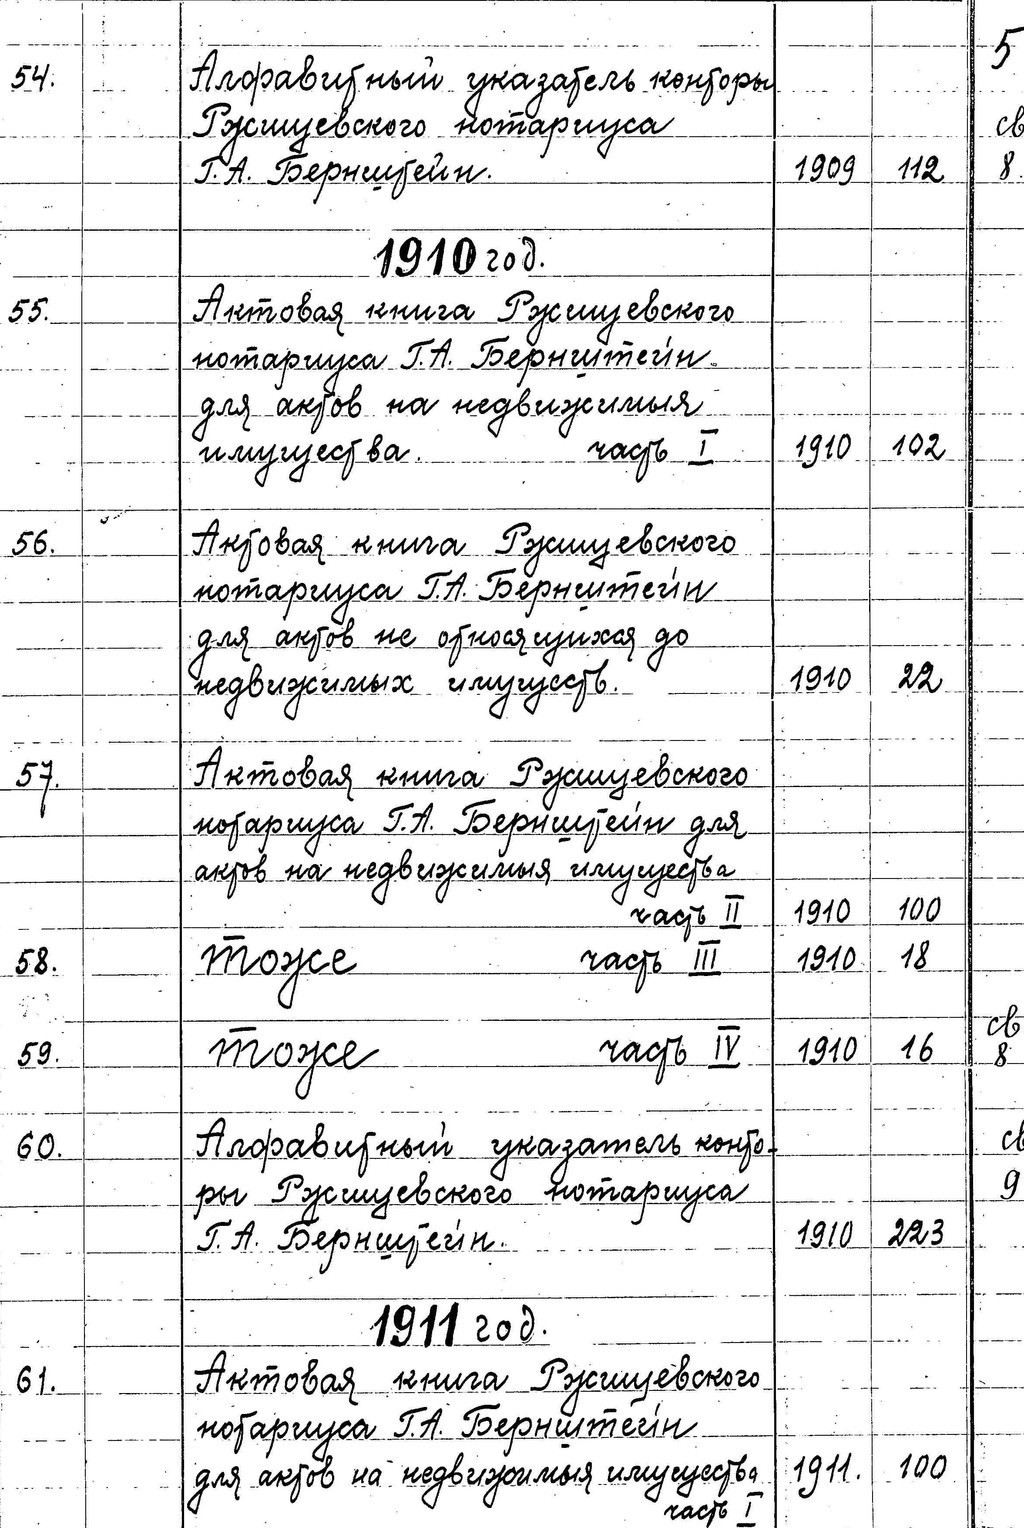 5
54. Алфавитный указатель конторы
Ржищевского нотариуса св
Г.А. Бернштейн. 1909 112 8.
1910 год.
55. Актовая книга Ржищевского
нотариуса Г.А. Бернштейн
для актов на недвижимыя
имущества. часть I 1910 102
56. Актовая книга Ржищевского
нотариуса Г.А. Бернштейн
для актов не относящихся до
недвижимых имуществ. 1910 22
57. Актовая книга Ржищевского
нотариуса Г.А. Бернштейн для
актов на недвижимыя имущества
часть II 1910 100
58. тоже часть III 1910 18
св
59. тоже часть IV 1910 16 8
60. Алфавитный указатель конто- св
ры Ржищевского нотариуса 9
Г.А. Бернштейн. 1910 223
1911 год.
61. Актовая книга Ржищевского
нотариуса Г.А. Бернштейн
для актов на недвижимыя имущества 1911. 100
часть I